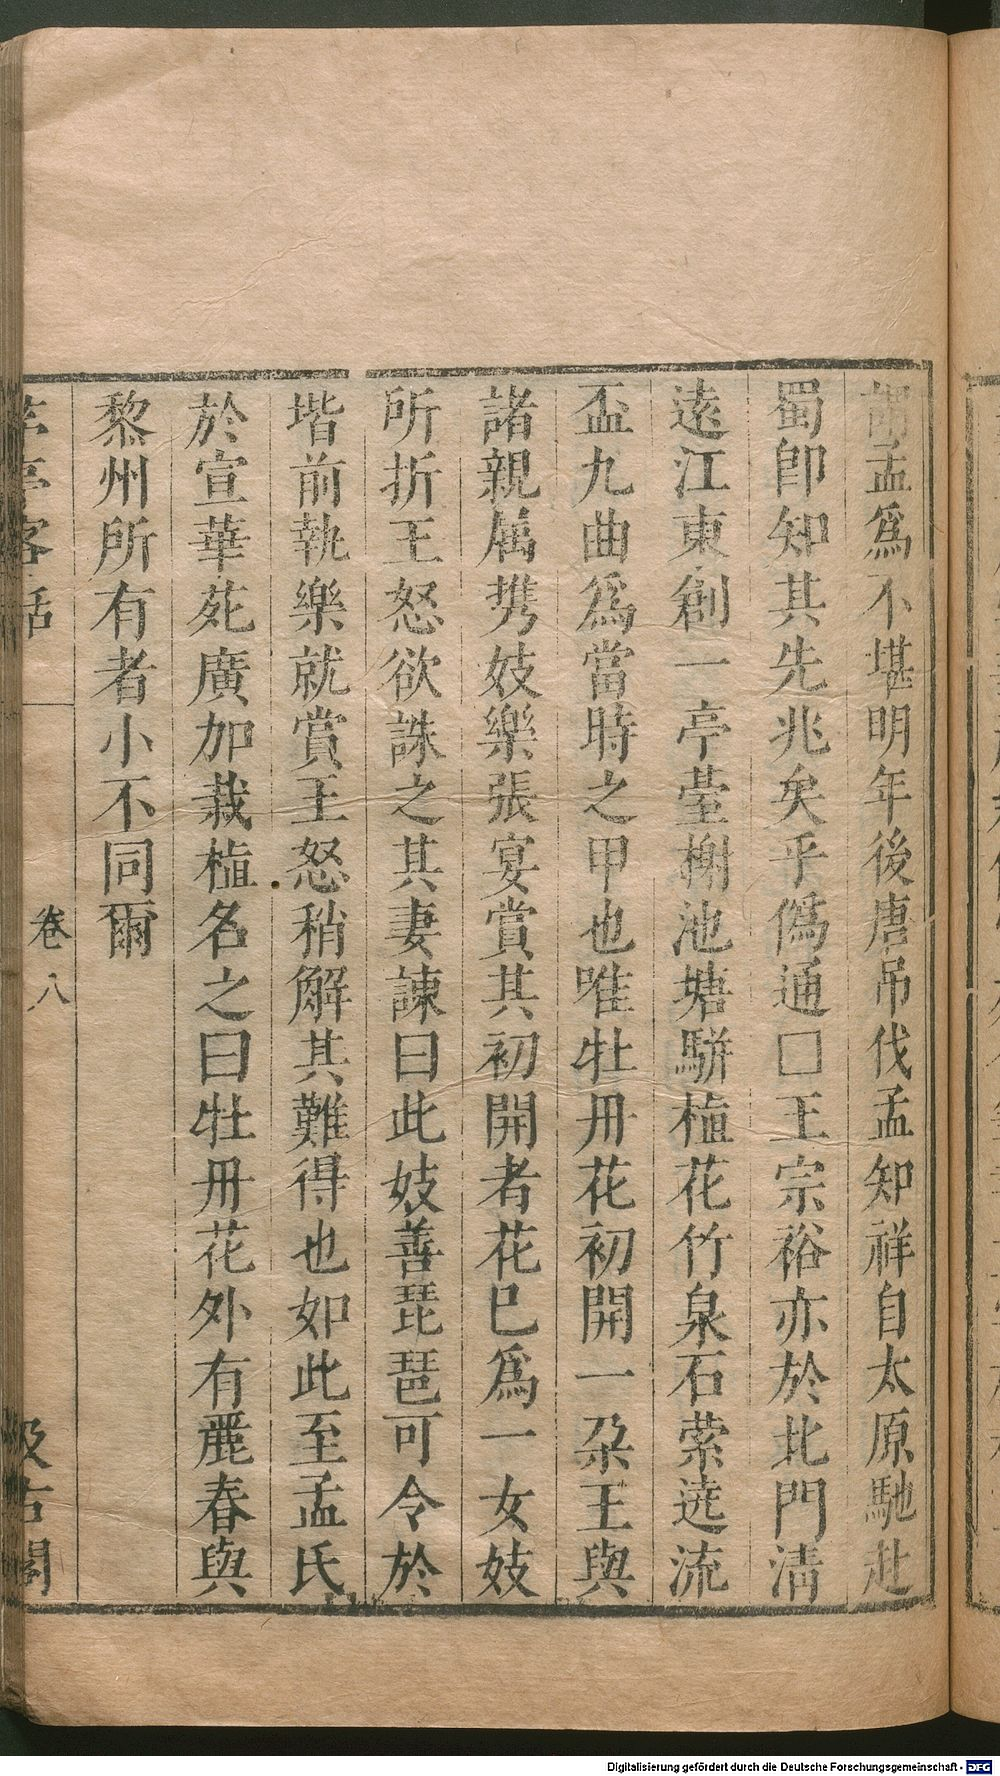 謂孟爲不堪明年後唐吊伐孟知祥自太原馳赴
蜀卽知其先兆矣乎僞通□王宗裕亦於北門淸
遠江東創一亭臺榭池塘駢植花竹泉石縈遶流
盃九曲爲當時之甲也唯牡丹花初開一朶王與
諸親属携妓樂張宴賞其初開者花已爲一女妓
所折王怒欲誅之其妻諫曰此妓善琵琶可令於
堦前執樂就賞王怒稍解其難得也如此至孟氏
於宣華苑廣加栽植名之曰牡丹花外有麗春與
黎州所有者小不同爾
茅亭客話 卷八 汲古閣
Digitalisierung gefördert durch die Deutsche Forschungsgemeinschaft - DFG